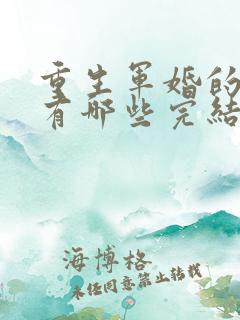 重生军婚的
有哪些完结
海博格
未经同意禁止转载